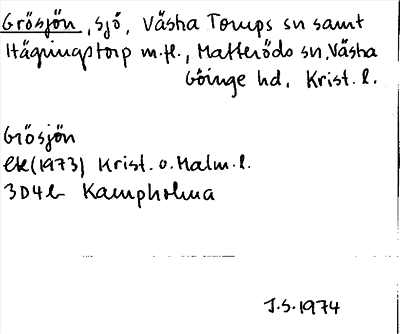 Grösjön, sjö, Västra Torups sn samt
Häglingstorp m.fl., Matteröds sn, Västra
Göinge hd, Krist. l.
Grösjön
Ek (1973) Krist. o. Malm. l.
3D4b Kampholma
J.S. 1974